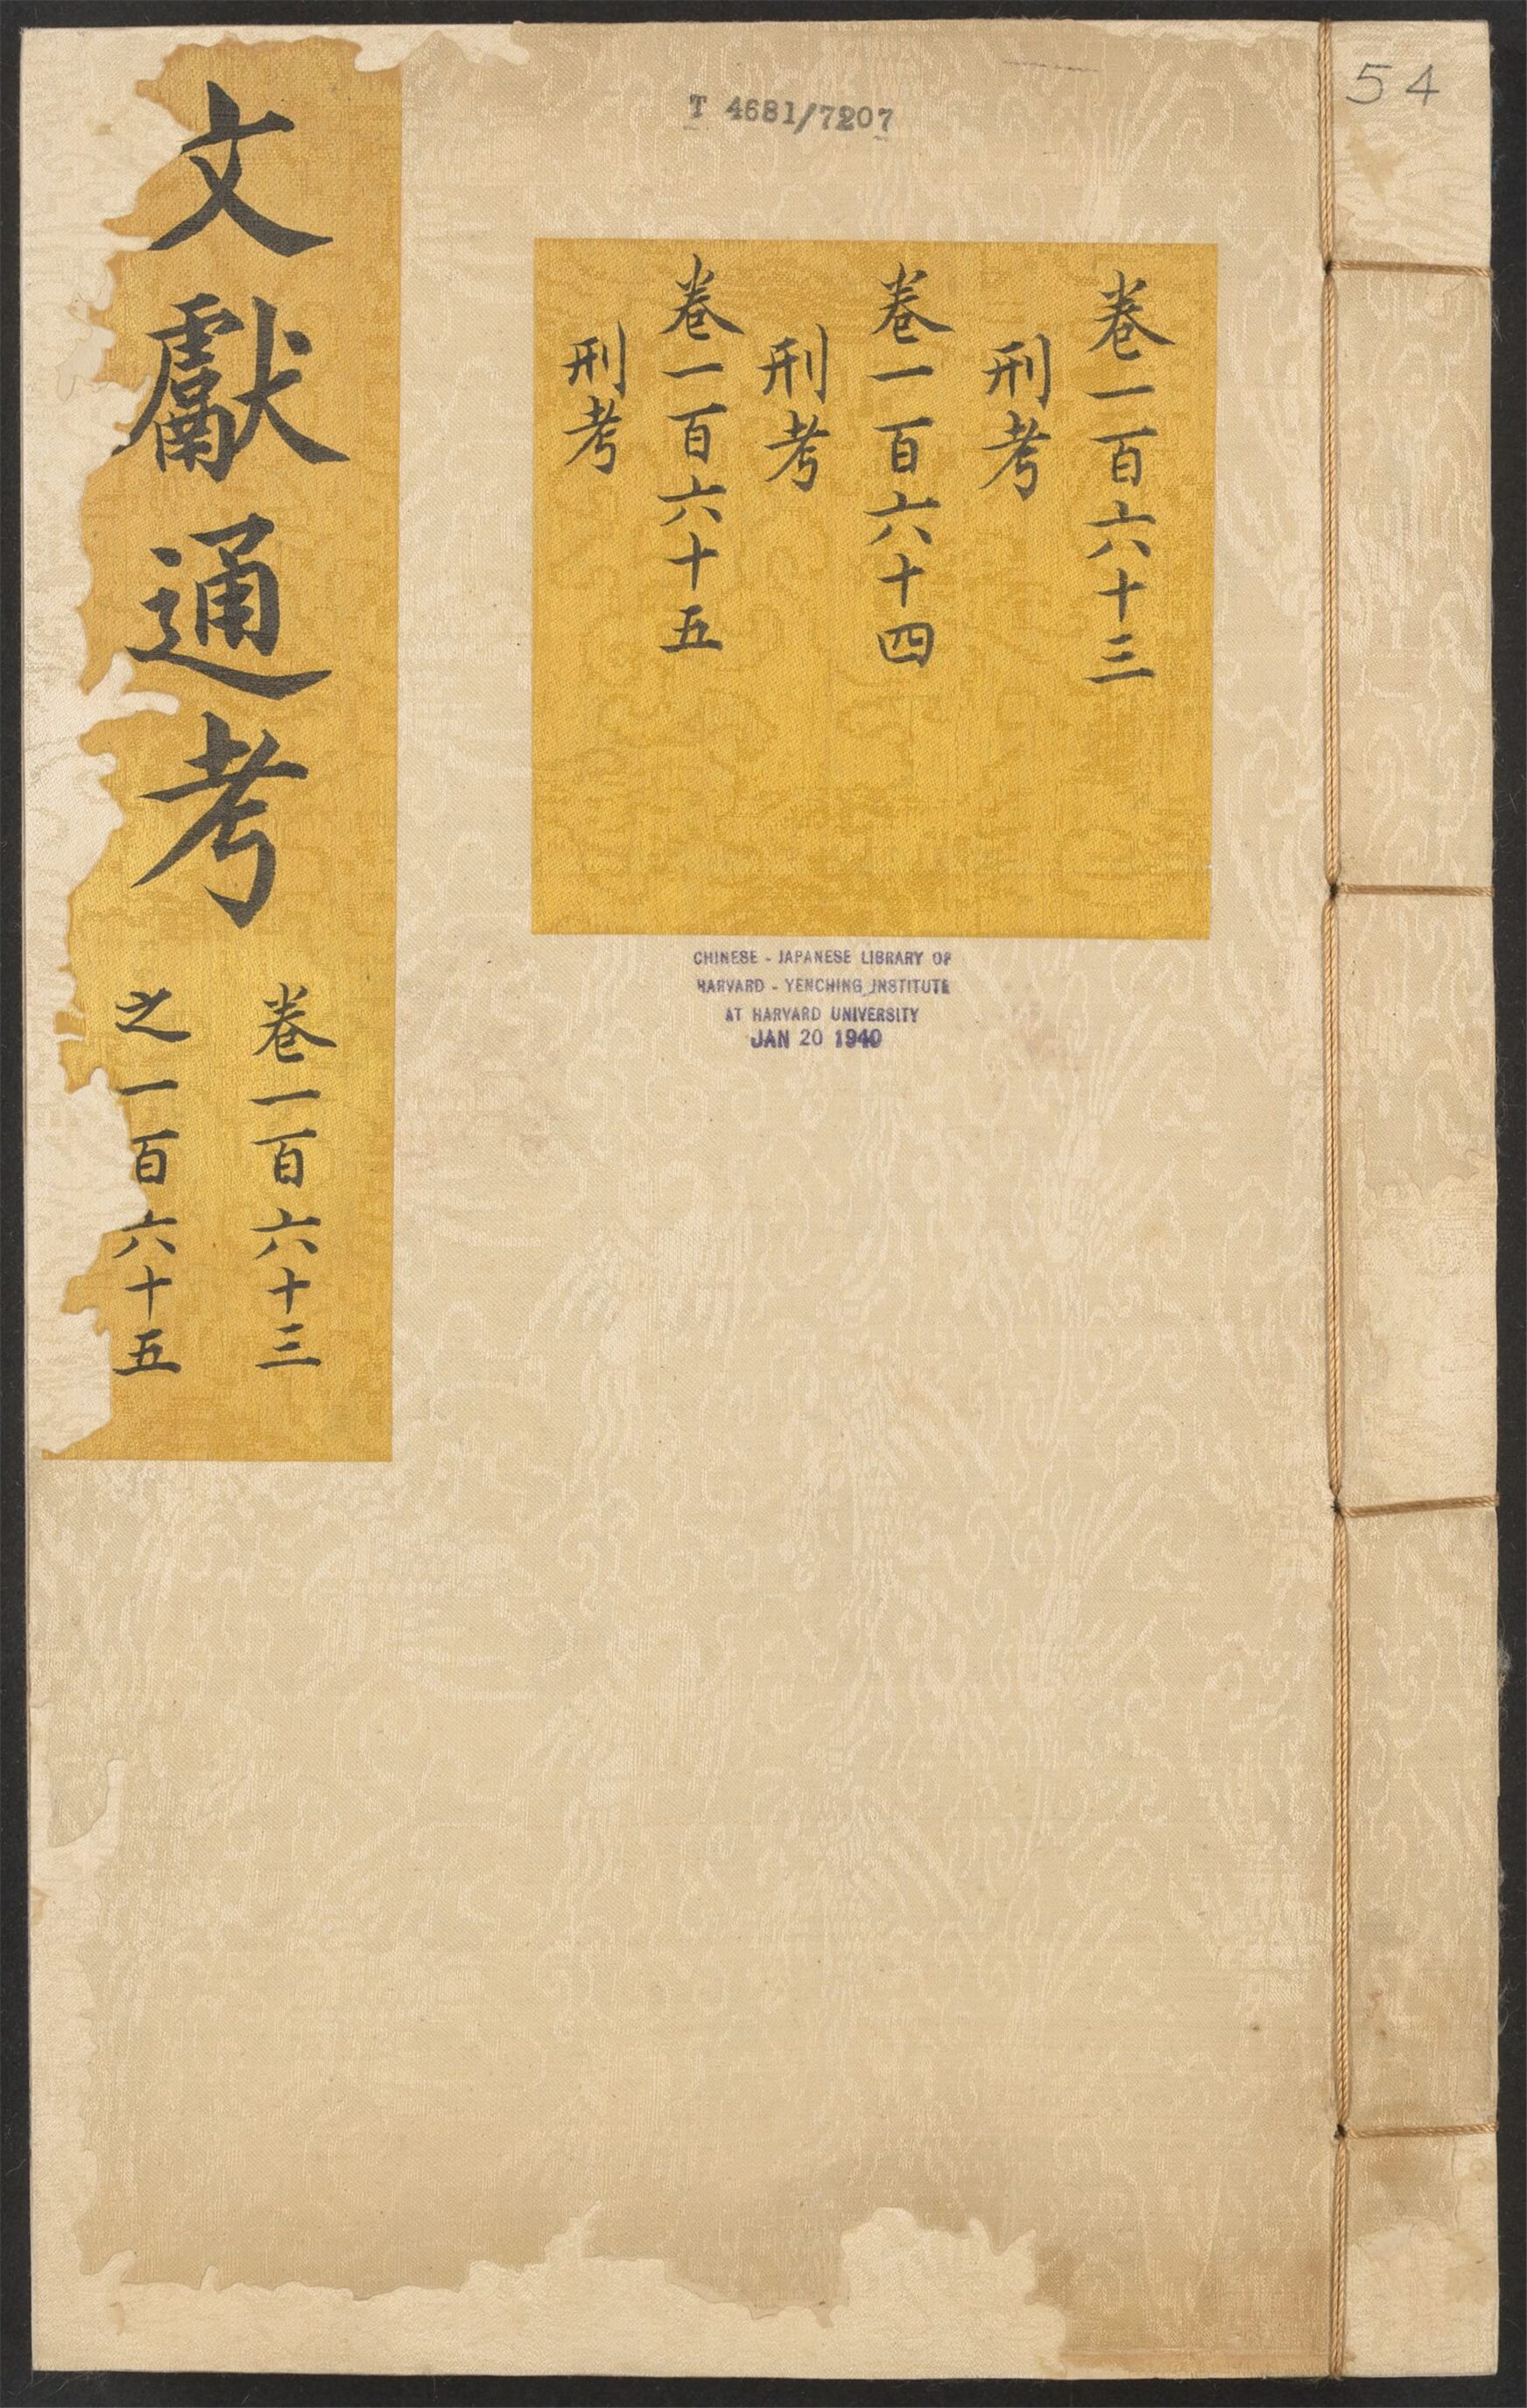 54
T 4681/7207
卷一百六十三
刑考
卷一百六十四
刑考
卷一百六十五
刑考
CHINESE - JAPANESE LIBRARY OF
HARVARD - YENCHING INSTITUTE
AT HARVARD UNIVERSITY
JAN 20 1940
文獻通考
卷一百六十三
之一百六十五